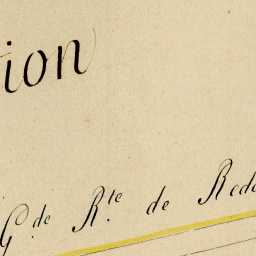 ion
G.de R.te de Redo